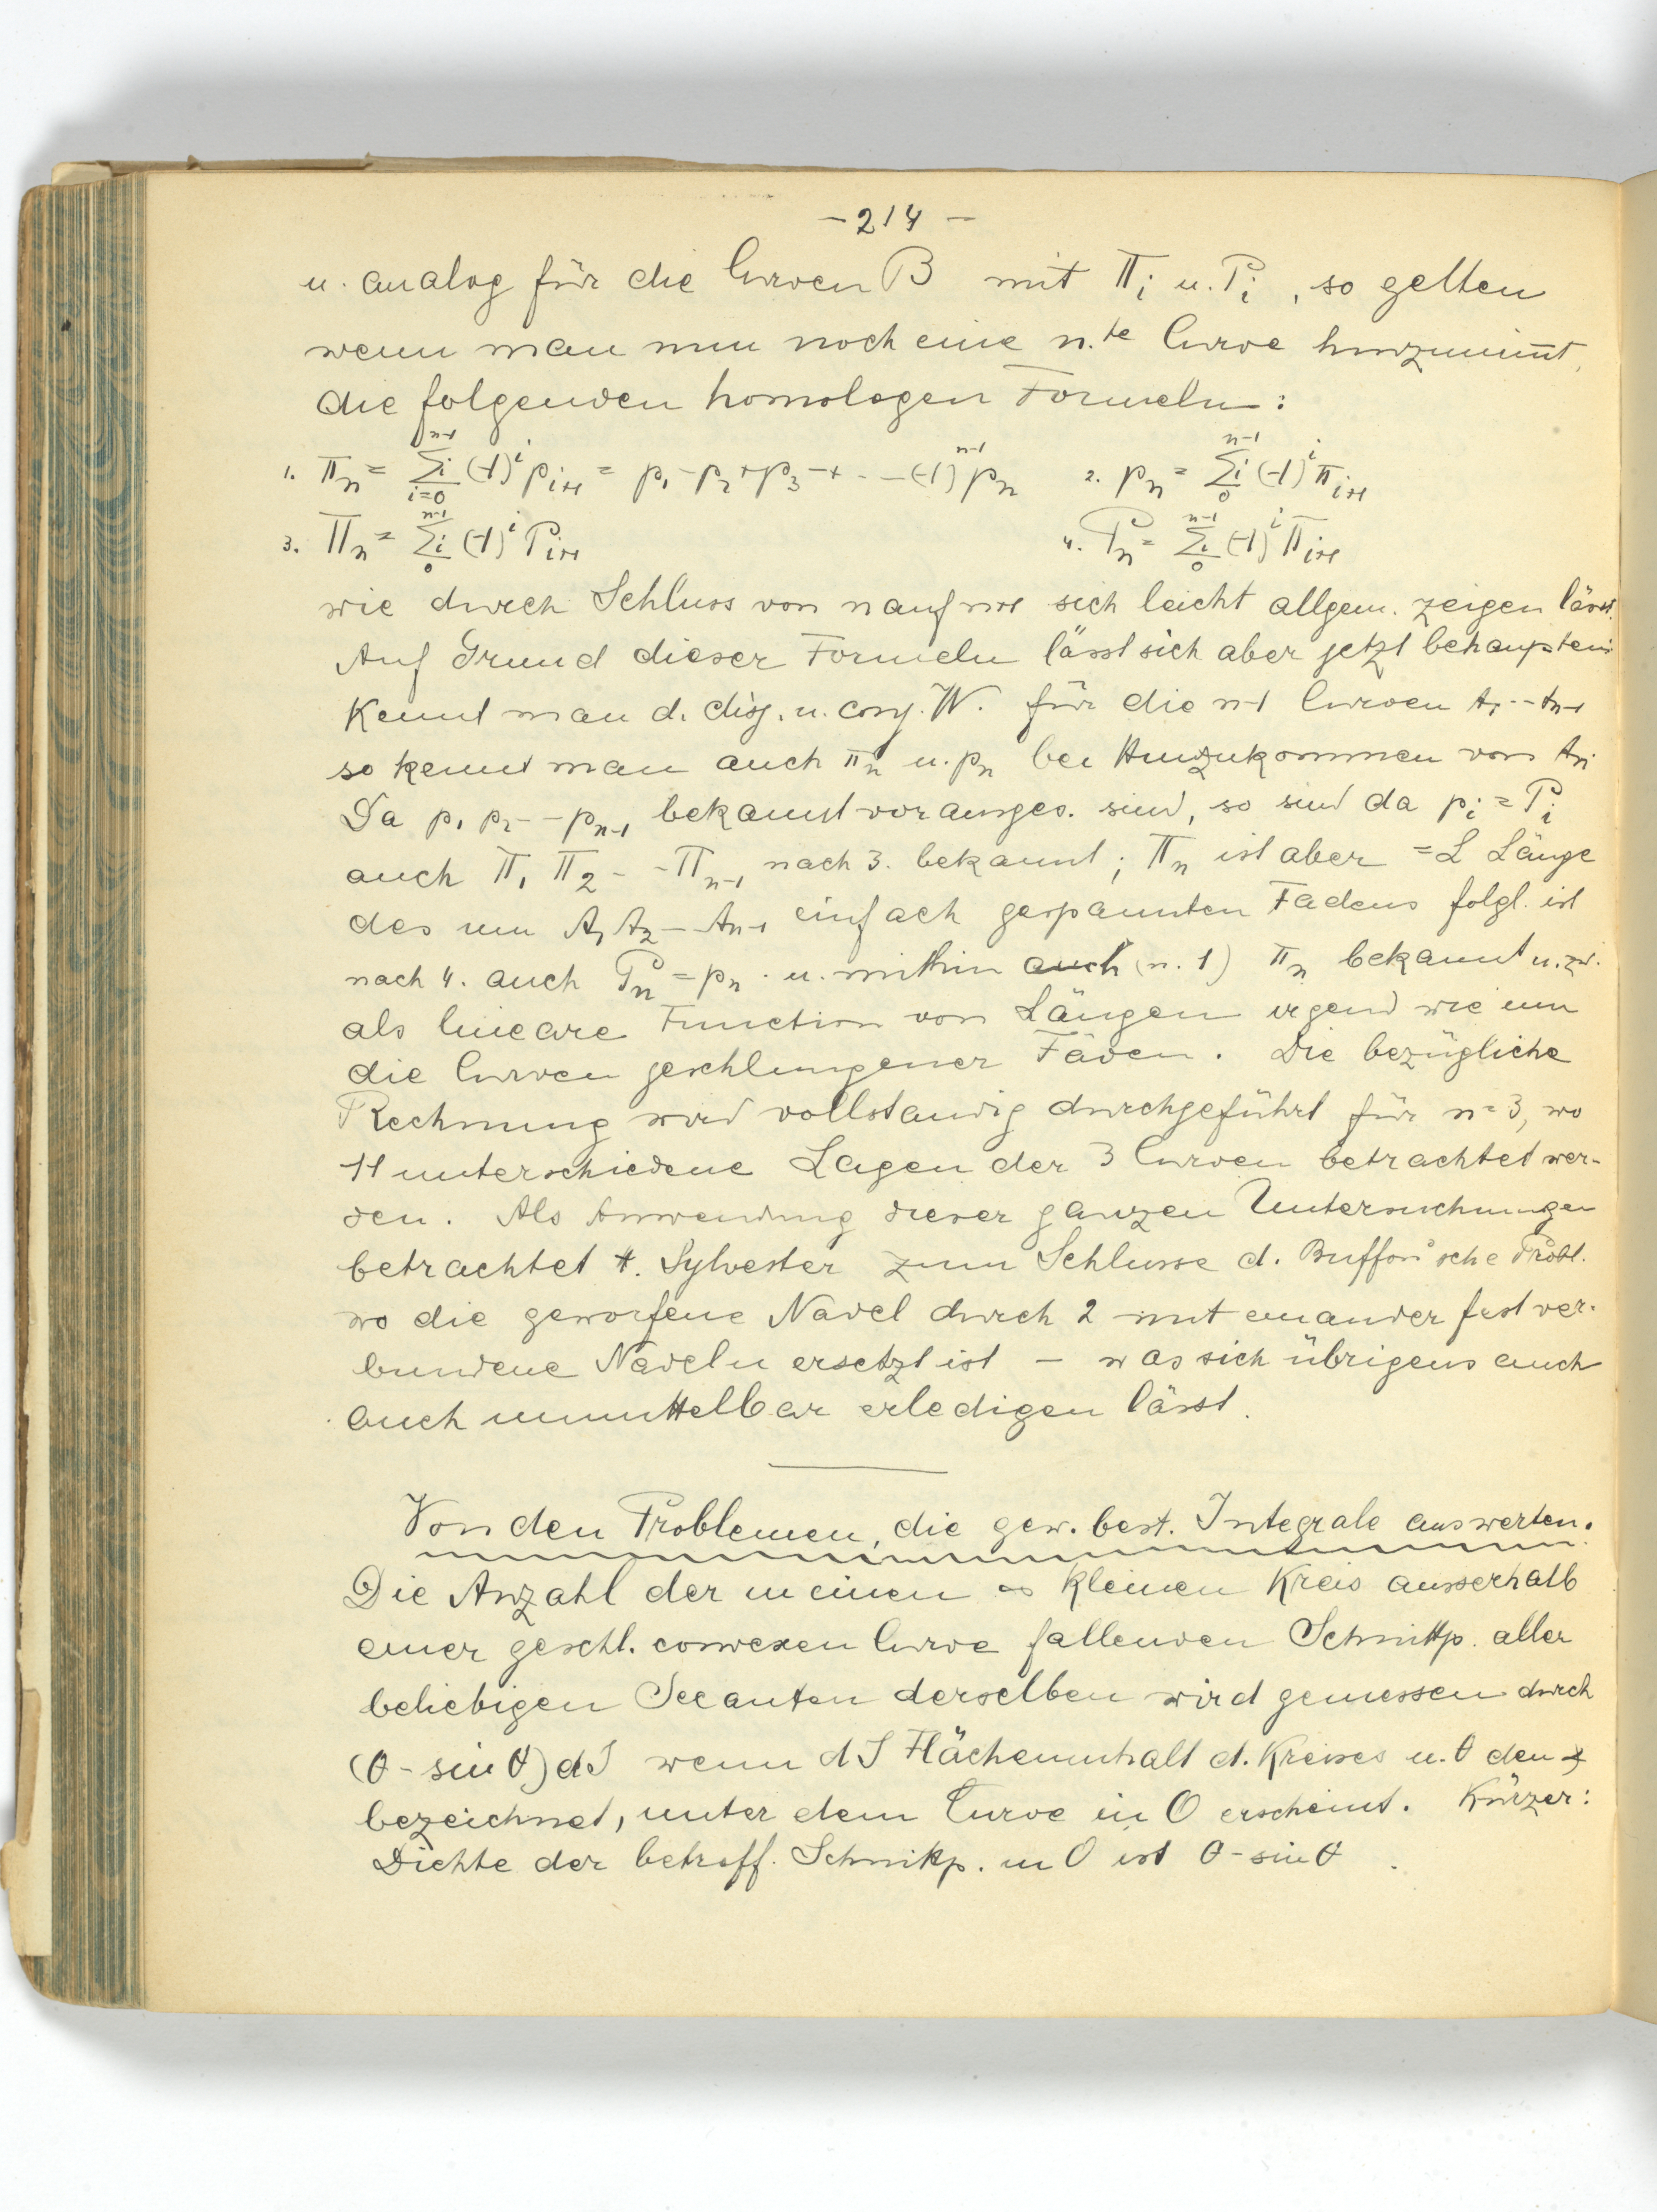 - 214 -
u. analog für die Curven B mit Π_i u. P_i, so gelten
wenn man nun noch eine n.te Curve hinzunimm̄t,
die folgenden homologen Formeln:
1. π_n = Σ_{i=0}^{n-1} i (-1)^i p_{i+1} = p_1 - p_2 + p_3 - + · - - (-1)^{n-1} p_n 2. p_n = Σ_0^{n-1} i (-1)^i π_{i+1}
3. Π_n = Σ_0^{n-1} i (-1)^i P_{i+1} 4. P_n = Σ_0^{n-1} i (-1)^i Π_{i+1}
wie durch Schluss von n auf n+1 sich leicht allgem. zeigen lässt.
Auf Grund dieser Formeln lässt sich aber jetzt behaupten:
Kennt man d. disj. u. conj. W. für die n-1 Curven A_1 -- A_{n-1}
so kennt man auch π_n u. p_n bei Hinzukommen von A_n.
Da p_1 p_2 -- p_{n-1} bekannt vorausges. sind, so sind da p_i = P_i
auch Π_1 Π_2 - - Π_{n-1} nach 3. bekannt; Π_n ist aber = L Länge
des um A_1 A_2 -- A_{n-1} einfach gespannten Fadens folgl. ist
nach 4. auch P_n = p_n . u. mithin auch (n. 1) π_n bekannt u. zw.
als lineare Function von Längen irgend wie um
die Curven geschlungener Fäden. Die bezügliche
Rechnung wird vollständig durchgeführt für n=3, wo
11 unterschiedene Lagen der 3 Curven betrachtet wer-
den. Als Anwendung dieser ganzen Untersuchungen
betrachtet H. Sylvester zum Schlusse d. Buffon'sche Probl.
wo die geworfene Nadel durch 2 mit einander fest ver-
bundene Nadeln ersetzt ist - was sich übrigens auch
auch unmittelbar erledigen lässt.
Von den Problemen, die gew. best. Integrale auswerten.
Die Anzahl der in einen ∞ kleinen Kreis ausserhalb
einer geschl. convexen Curve fallenden Schnittp. aller
beliebigen Secanten derselben wird gemessen durch
(θ - sin θ) dJ wenn dJ Flächeninhalt d. Kreises u. θ den ∢
bezeichnet, unter dem Curve in O erscheint. Kürzer:
Dichte der betreff. Schnittp. in O ist θ - sin θ.